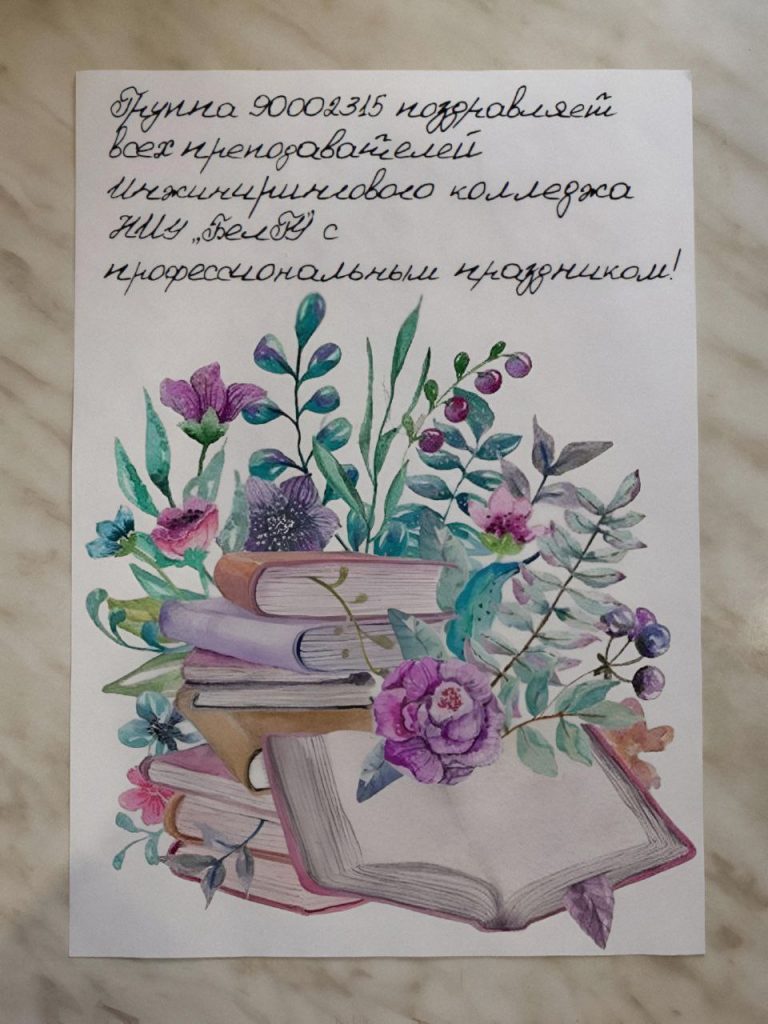 Группа 90002315 поздравляет
всех преподавателей
Инжинирингового колледжа
НИУ „БелГУ" с
профессиональным праздником!